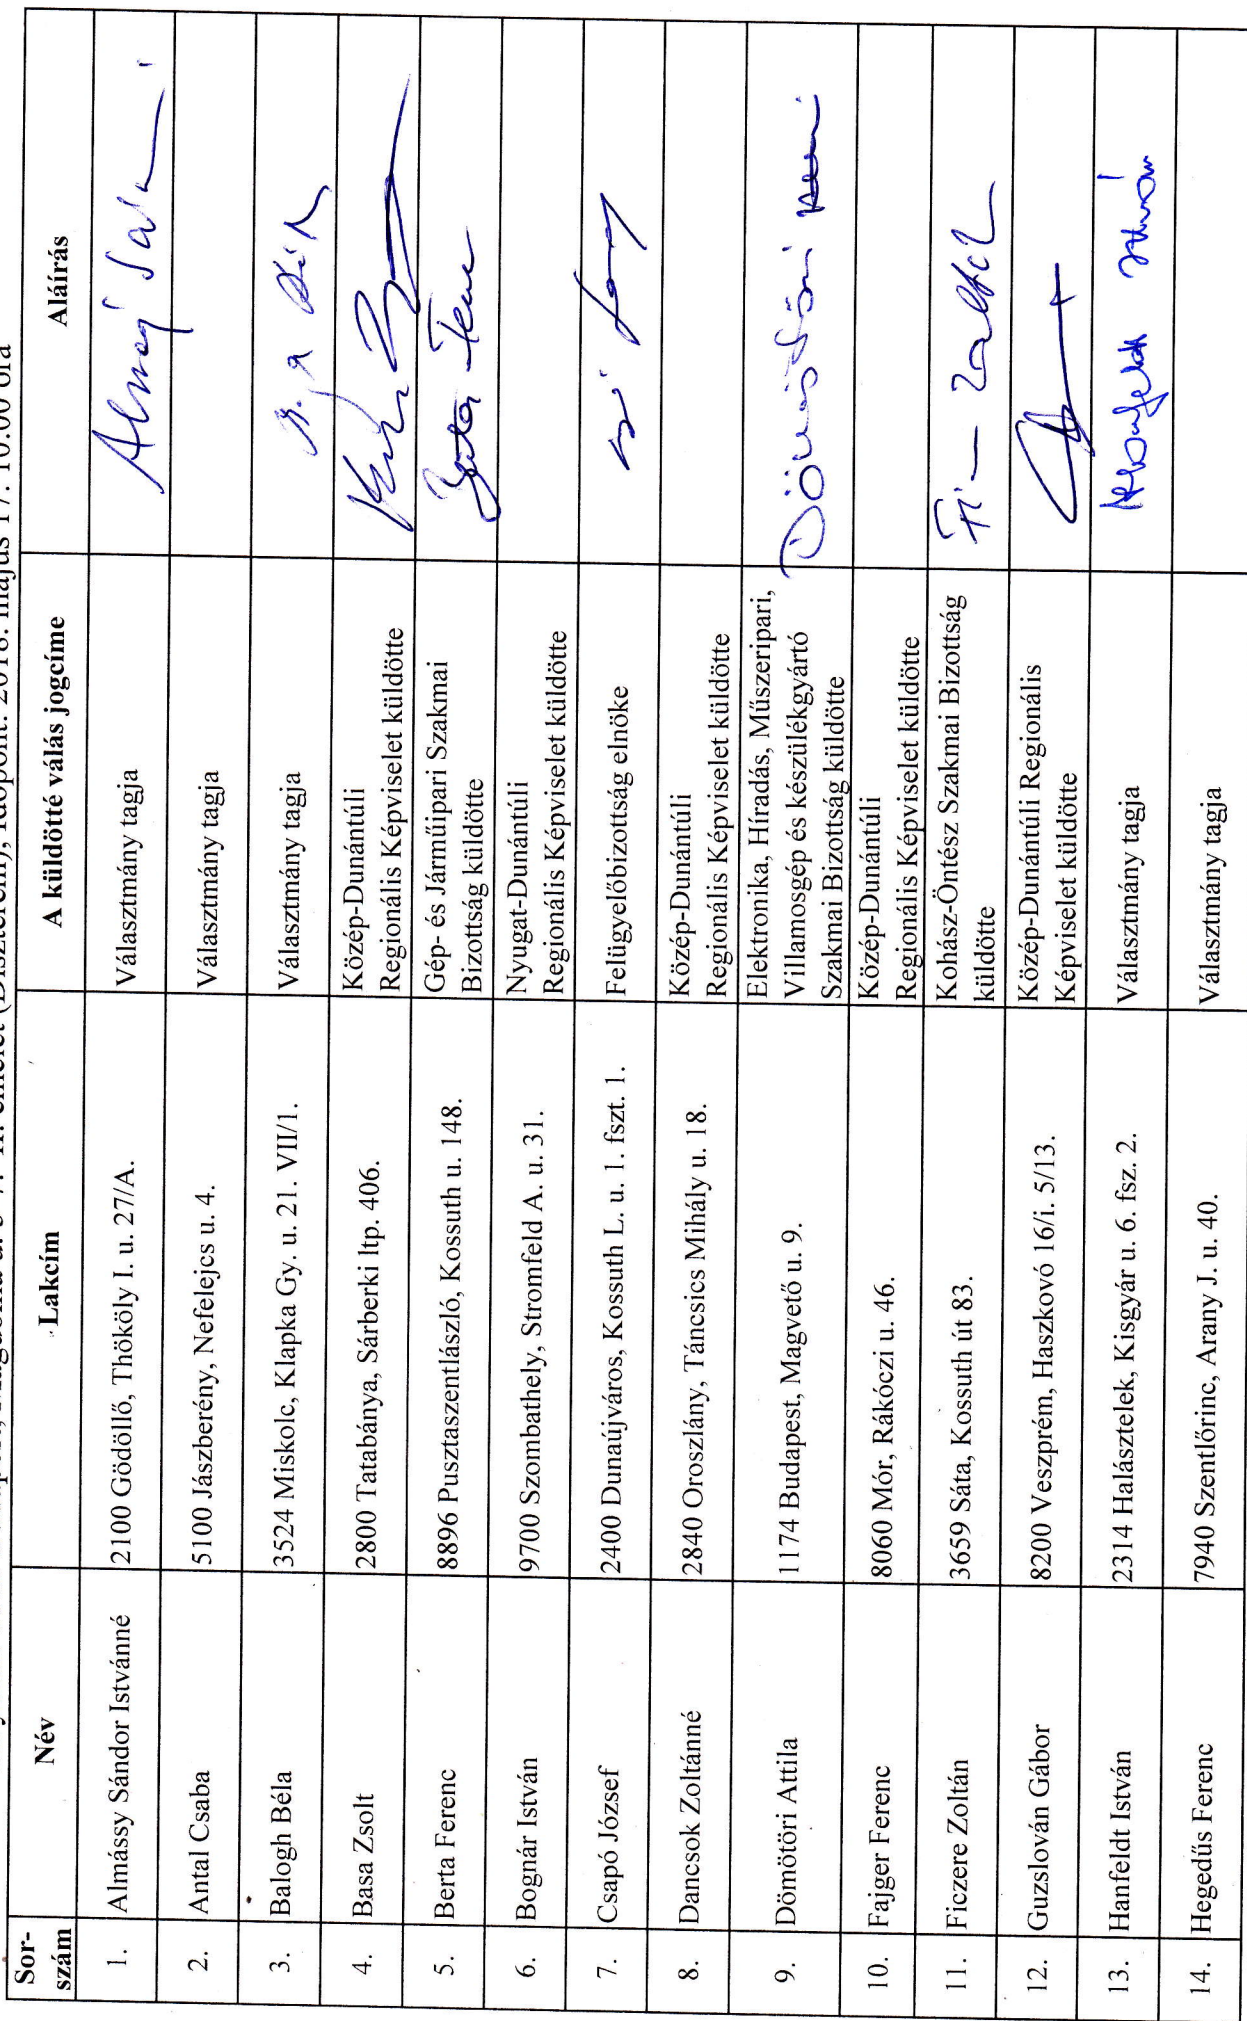 emelet (Díszterem), Időpont: 2018. május 17. 10.00 óra
Sor-
szám
Név
Lakcím
A küldötté válás jogcíme
Aláírás
1. Almássy Sándor Istvánné 2100 Gödöllő, Thököly I. u. 27/A. Választmány tagja
2. Antal Csaba 5100 Jászberény, Nefelejcs u. 4. Választmány tagja
3. Balogh Béla 3524 Miskolc, Klapka Gy. u. 21. VII/1. Választmány tagja
4. Basa Zsolt 2800 Tatabánya, Sárberki ltp. 406. Közép-Dunántúli
Regionális Képviselet küldötte
5. Berta Ferenc 8896 Pusztaszentlászló, Kossuth u. 148. Gép- és Járműipari Szakmai
Bizottság küldötte
6. Bognár István 9700 Szombathely, Stromfeld A. u. 31. Nyugat-Dunántúli
Regionális Képviselet küldötte
7. Csapó József 2400 Dunaújváros, Kossuth L. u. 1. fszt. 1. Felügyelőbizottság elnöke
8. Dancsok Zoltánné 2840 Oroszlány, Táncsics Mihály u. 18. Közép-Dunántúli
Regionális Képviselet küldötte
9. Dömötöri Attila 1174 Budapest, Magvető u. 9. Elektronika, Híradás, Műszeripari,
Villamosgép és készülékgyártó
Szakmai Bizottság küldötte
10. Fajger Ferenc 8060 Mór, Rákóczi u. 46. Közép-Dunántúli
Regionális Képviselet küldötte
11. Ficzere Zoltán 3659 Sáta, Kossuth út 83. Kohász-Öntész Szakmai Bizottság
küldötte
12. Guzslován Gábor 8200 Veszprém, Haszkovó 16/i. 5/13. Közép-Dunántúli Regionális
Képviselet küldötte
13. Hanfeldt István 2314 Halásztelek, Kisgyár u. 6. fsz. 2. Választmány tagja
14. Hegedűs Ferenc 7940 Szentlőrinc, Arany J. u. 40. Választmány tagja